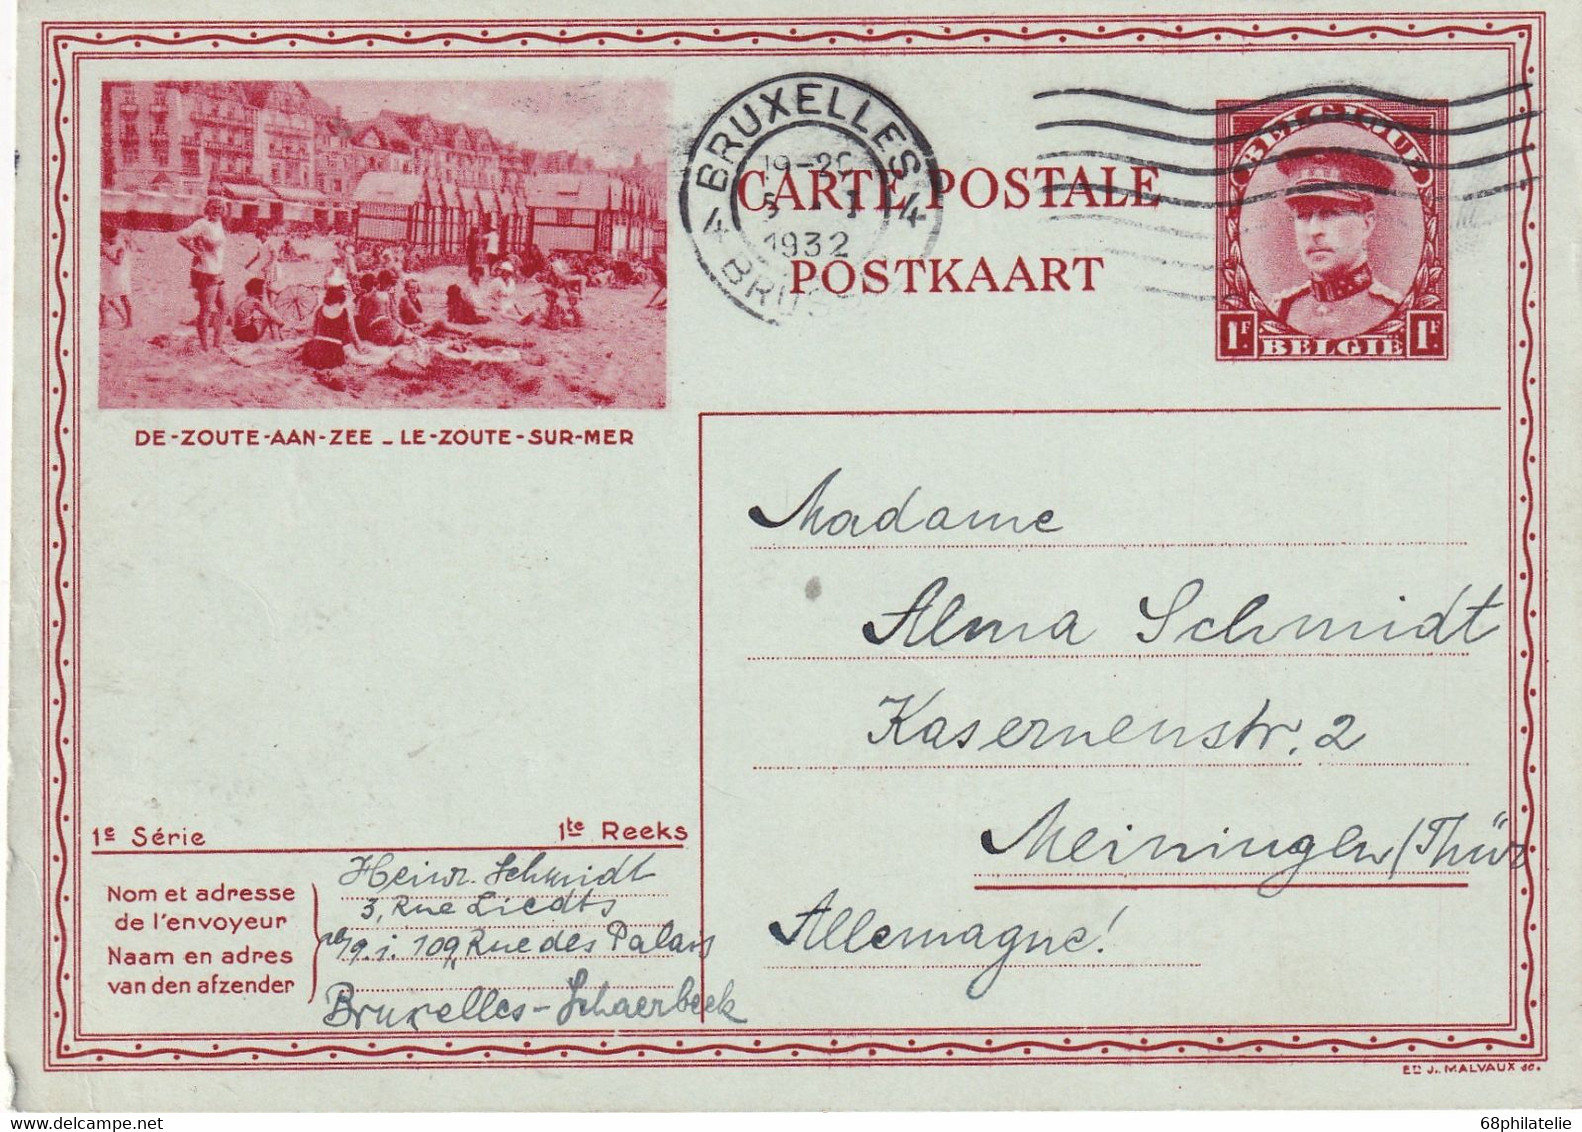 BRUXELLES
4 4
19-20
1932
CARTE POSTALE
POSTKAART
BELGIQUE
1F. BELGIË 1F.
DE-ZOUTE-AAN-ZEE - LE-ZOUTE-SUR-MER
Madame
Alma Schmidt
Kasernenstr. 2
Meiningen/Thür
Allemagne!
1e Série 1te Reeks
Nom et adresse
de l'envoyeur
Naam en adres
van den afzender
Heinr. Schmidt
3, Rue Liedts
109, Rue des Palais
Bruxelles-Schaerbeek
ED J. MALVAUX
68philatelie